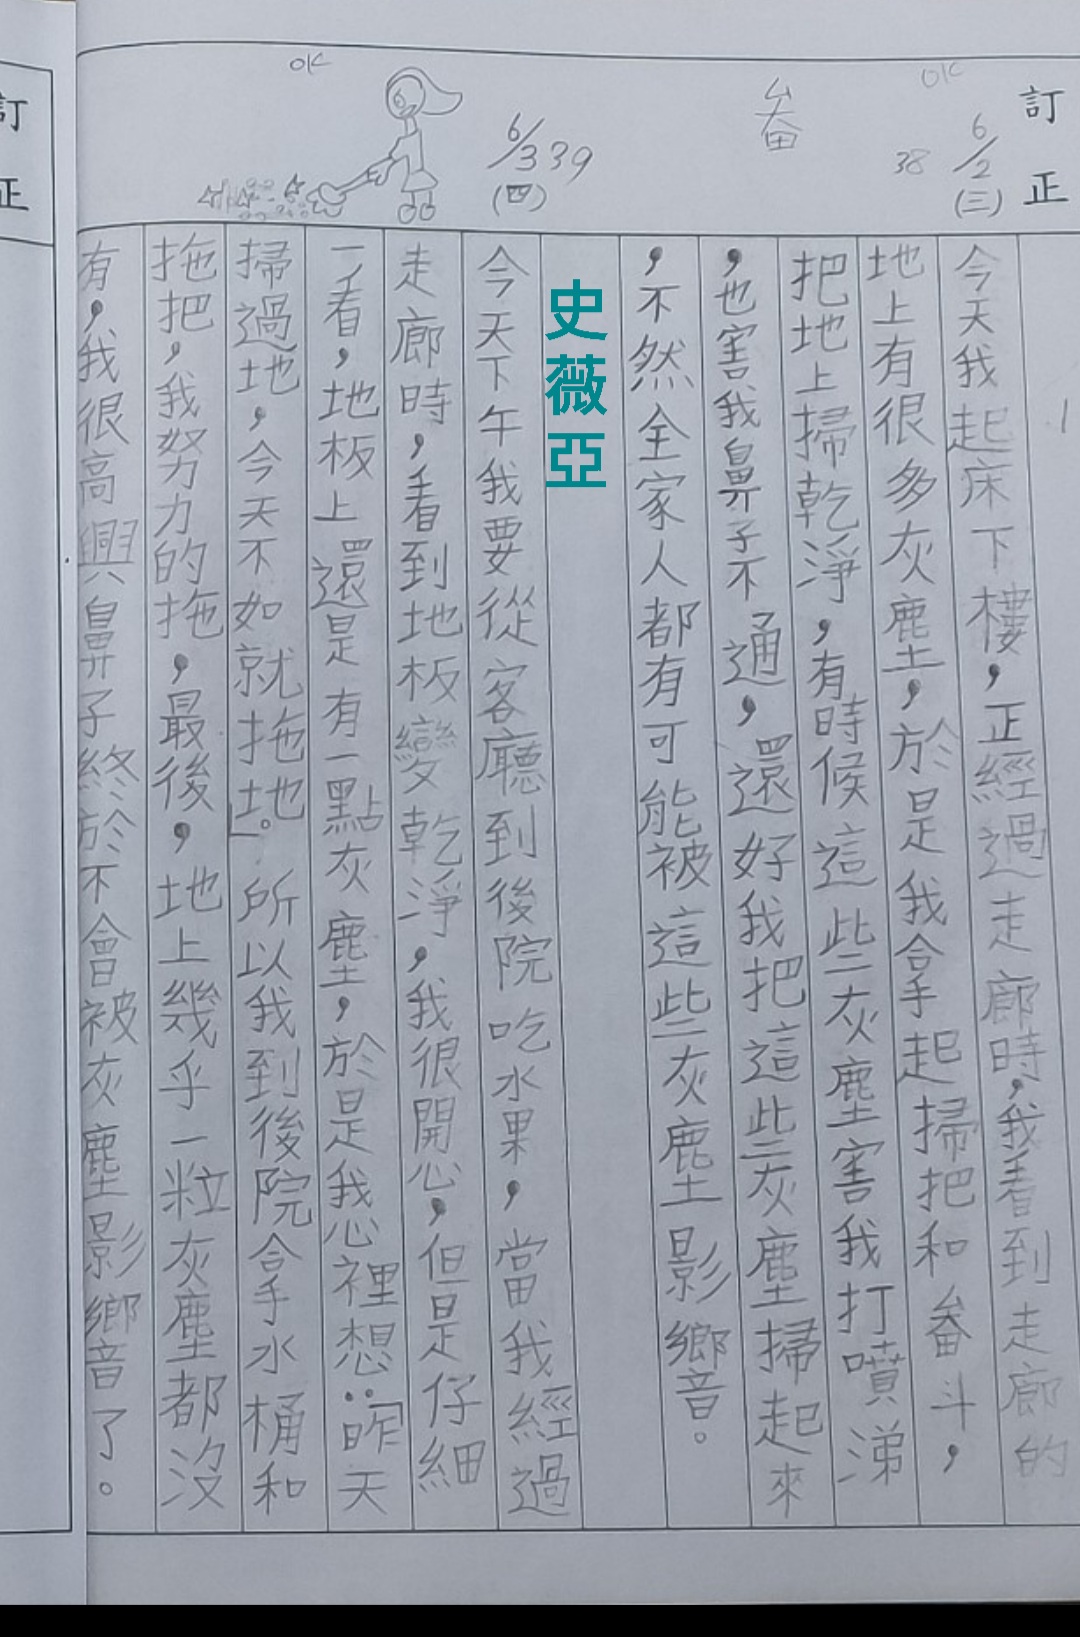 訂正
OK
6/2
(三)
38
畚
今天我起床下樓，正經過走廊時，我看到走廊的
地上有很多灰塵，於是我拿起掃把和畚斗，
把地上掃乾淨，有時候這些灰塵害我打噴涕
，也害我鼻子不通，還好我把這些灰塵掃起來
，不然全家人都有可能被這些灰塵影響。
史薇亞
6/3
(四)
39
OK
今天下午我要從客廳到後院吃水果，當我經過
走廊時，看到地板變乾淨，我很開心，但是仔細
一看，地板上還是有一點灰塵，於是我心裡想：「昨天
掃過地，今天不如就拖地」。所以我到後院拿水桶和
拖把，我努力的拖，最後，地上幾乎一粒灰塵都沒
有，我很高興鼻子終於不會被灰塵影響了。
訂正